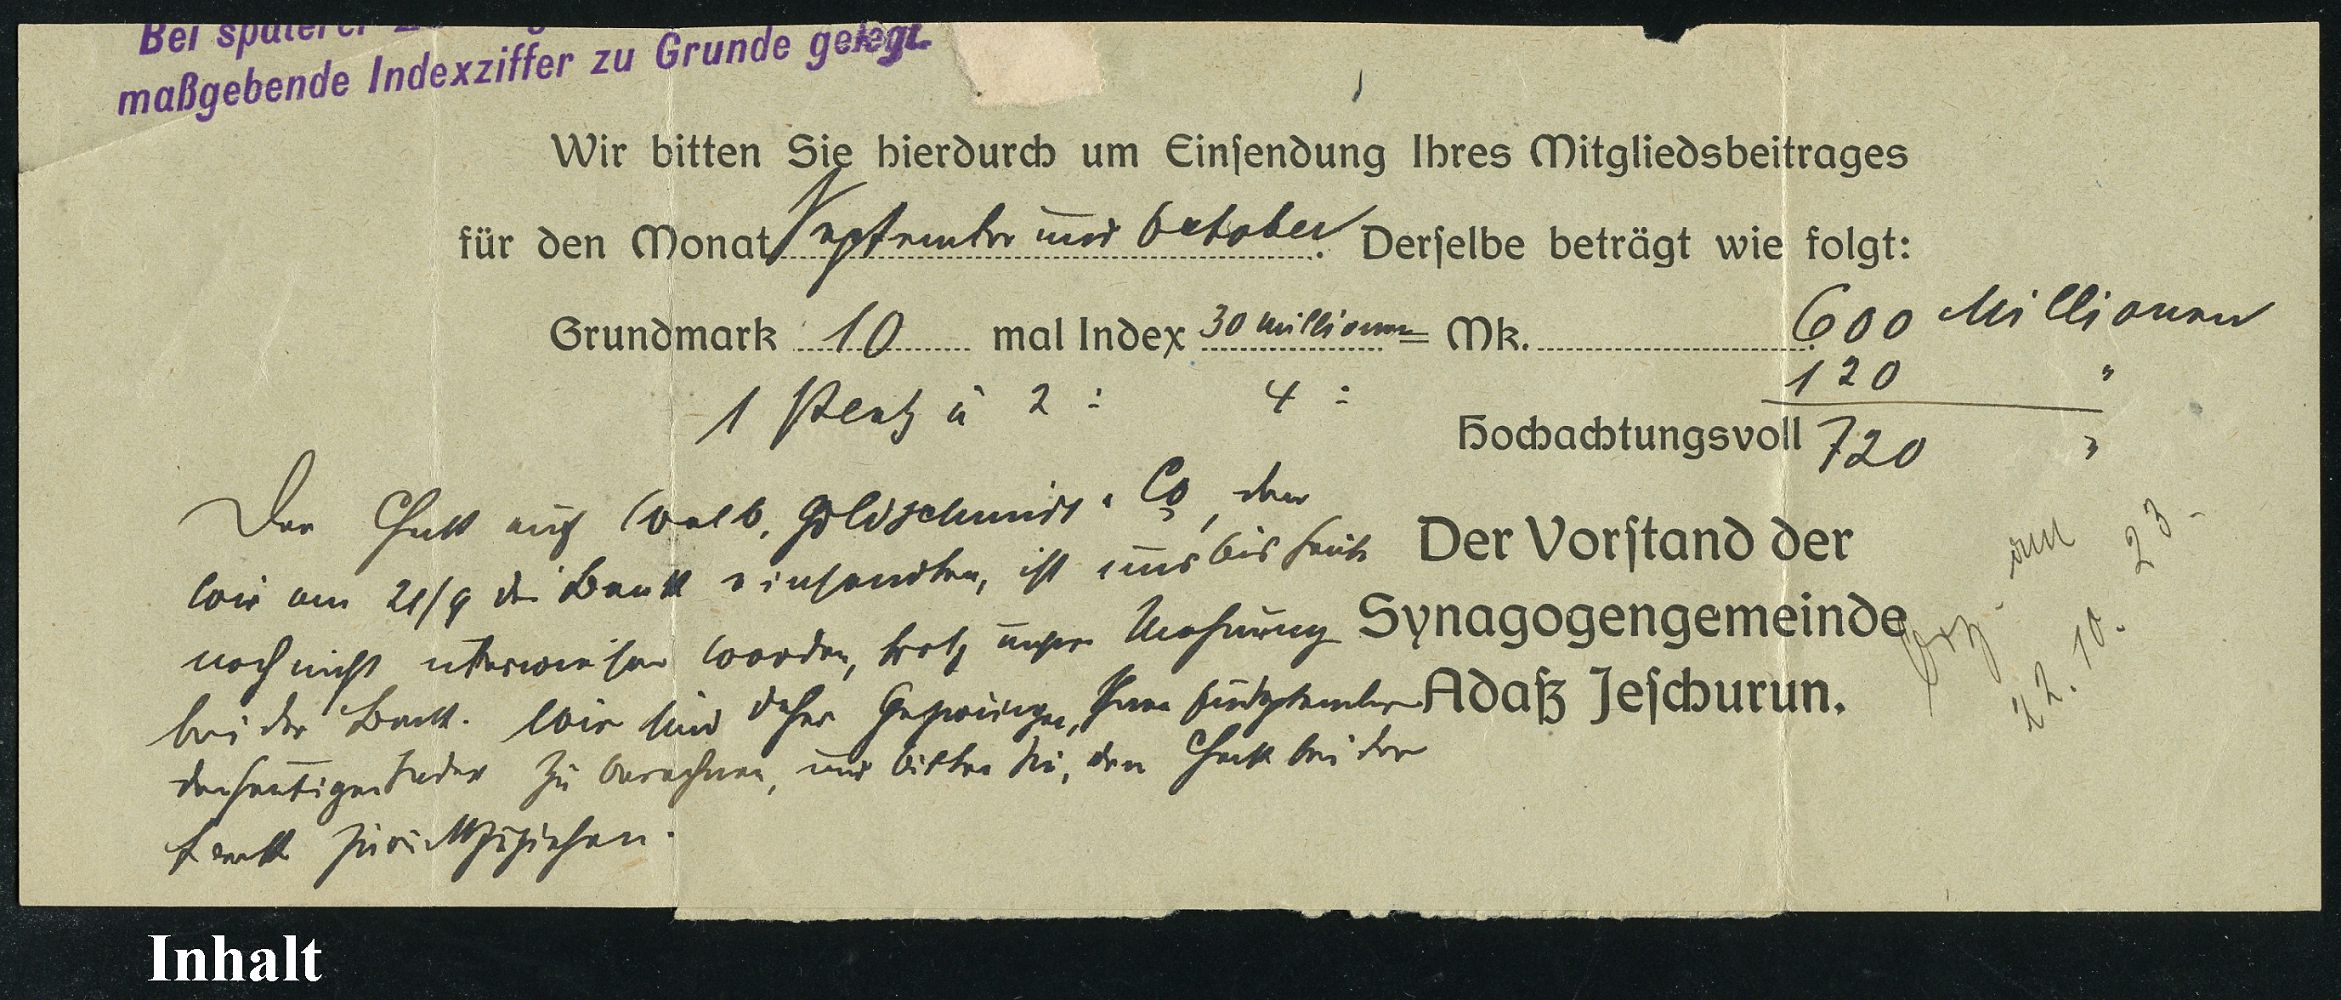 Bei späterer
maßgebende Indexziffer zu Grunde gelegt.
Wir bitten Sie hierdurch um Einsendung Ihres Mitgliedsbeitrages
für den Monat September und October. Derselbe beträgt wie folgt:
Grundmark 10 mal Index 30 Millionen = Mk. 600 Millionen
120 "
1 Platz à 2 : 4 :
Hochachtungsvoll 720 "
Der Check auf Goldschmidt & Co, den
wir am 21/9 der Bank einsandten, ist uns bis heute
noch nicht überwiesen worden, trotz unserer Mahnung
bei der Bank. Wir sind daher gezwungen, Ihnen für September
den heutigen Index zu berechnen, und bitten Sie, den Check bei der
Bank zurückzuziehen.
Der Vorstand der
Synagogengemeinde
Adaß Jeschurun.
22. 10. 23.
Inhalt